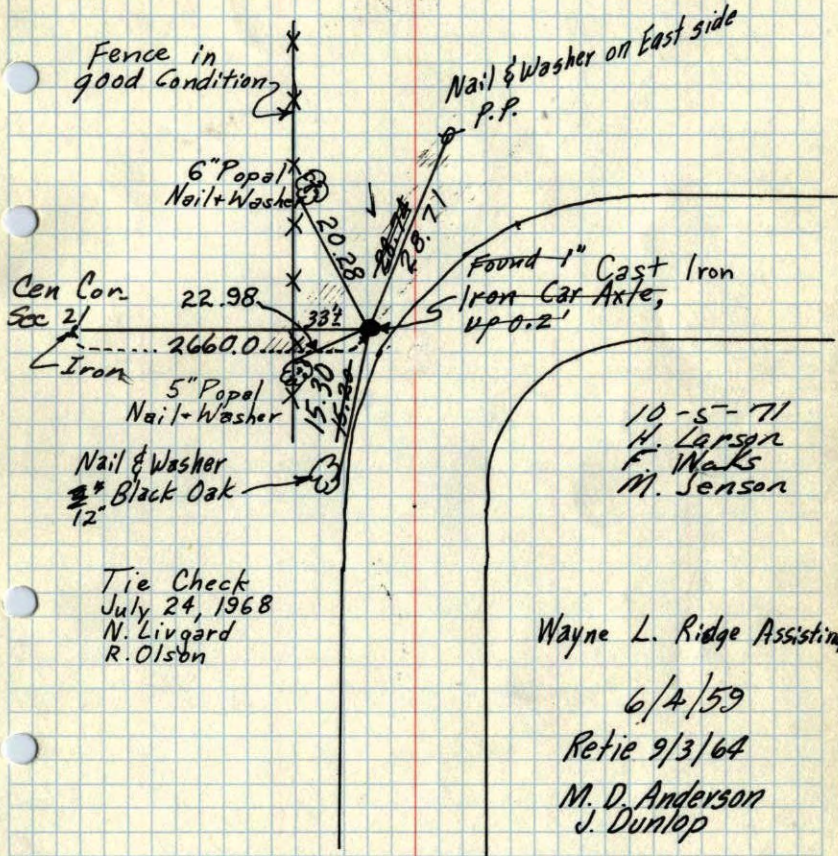 Fence in
good Condition
Nail & Washer on East side
P.P.
6" Popal
Nail + Washer
20.28
28.74
28.71
Found 1" Cast Iron
Iron Car Axle,
up 0.2'
Cen Cor
Sec 21
22.98
33±
2660.0
Iron
5" Popal
Nail + Washer
15.30
Nail & Washer
12" Black Oak
10-5-71
H. Larson
F. Waks
M. Jenson
Tie Check
July 24, 1968
N. Livgard
R. Olson
Wayne L. Ridge Assisting
6/4/59
Retie 9/3/64
M. D. Anderson
J. Dunlop